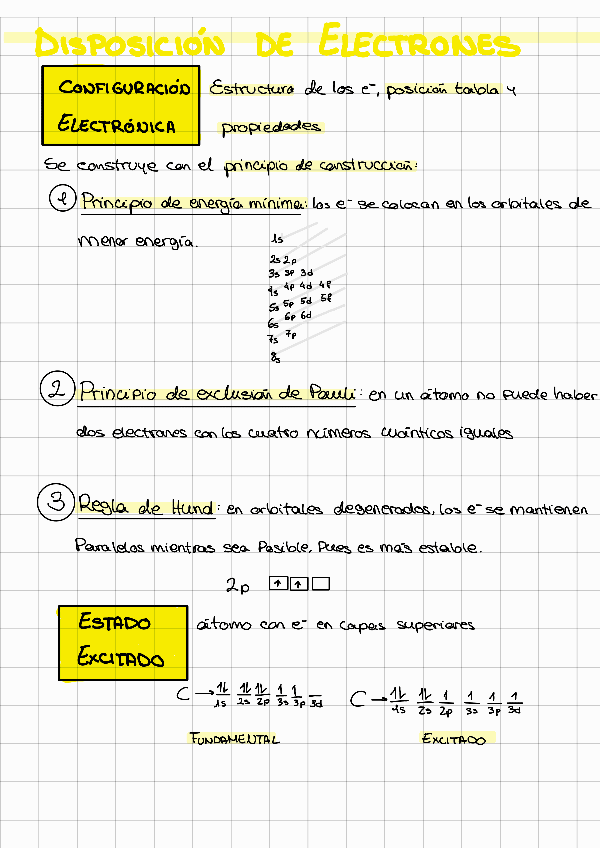 DISPOSICIÓN DE ELECTRONES
CONFIGURACIÓN Estructura de los e⁻, posición tabla y
ELECTRÓNICA propiedades
Se construye con el principio de construcción:
1 Principio de energía mínima: los e⁻ se colocan en los orbitales de
menor energía.
1s
2s 2p
3s 3p 3d
4s 4p 4d 4f
5s 5p 5d 5f
6s 6p 6d
7s 7p
8s
2 Principio de exclusión de Pauli: en un átomo no puede haber
dos electrones con los cuatro números cuánticos iguales
3 Regla de Hund: en orbitales degenerados, los e⁻ se mantienen
Paralelos mientras sea Posible, Pues es más estable.
2p ↑ ↑
ESTADO átomo con e⁻ en capas superiores
EXCITADO
C → 1l 1l 1l 1 1 C → 1l 1l 1 1 1 1
1s 2s 2p 3s 3p 3d 1s 2s 2p 3s 3p 3d
FUNDAMENTAL EXCITADO